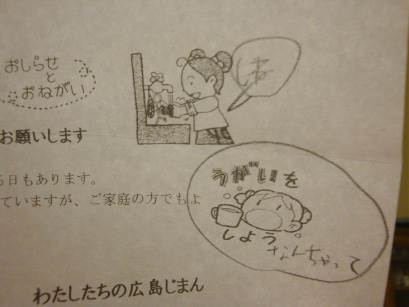 おしらせ
と
おねがい
お願いします
日もあります。
ていますが、ご家庭の方でもよ
うがいを
しよう
なんちゃって
わたしたちの広島じまん